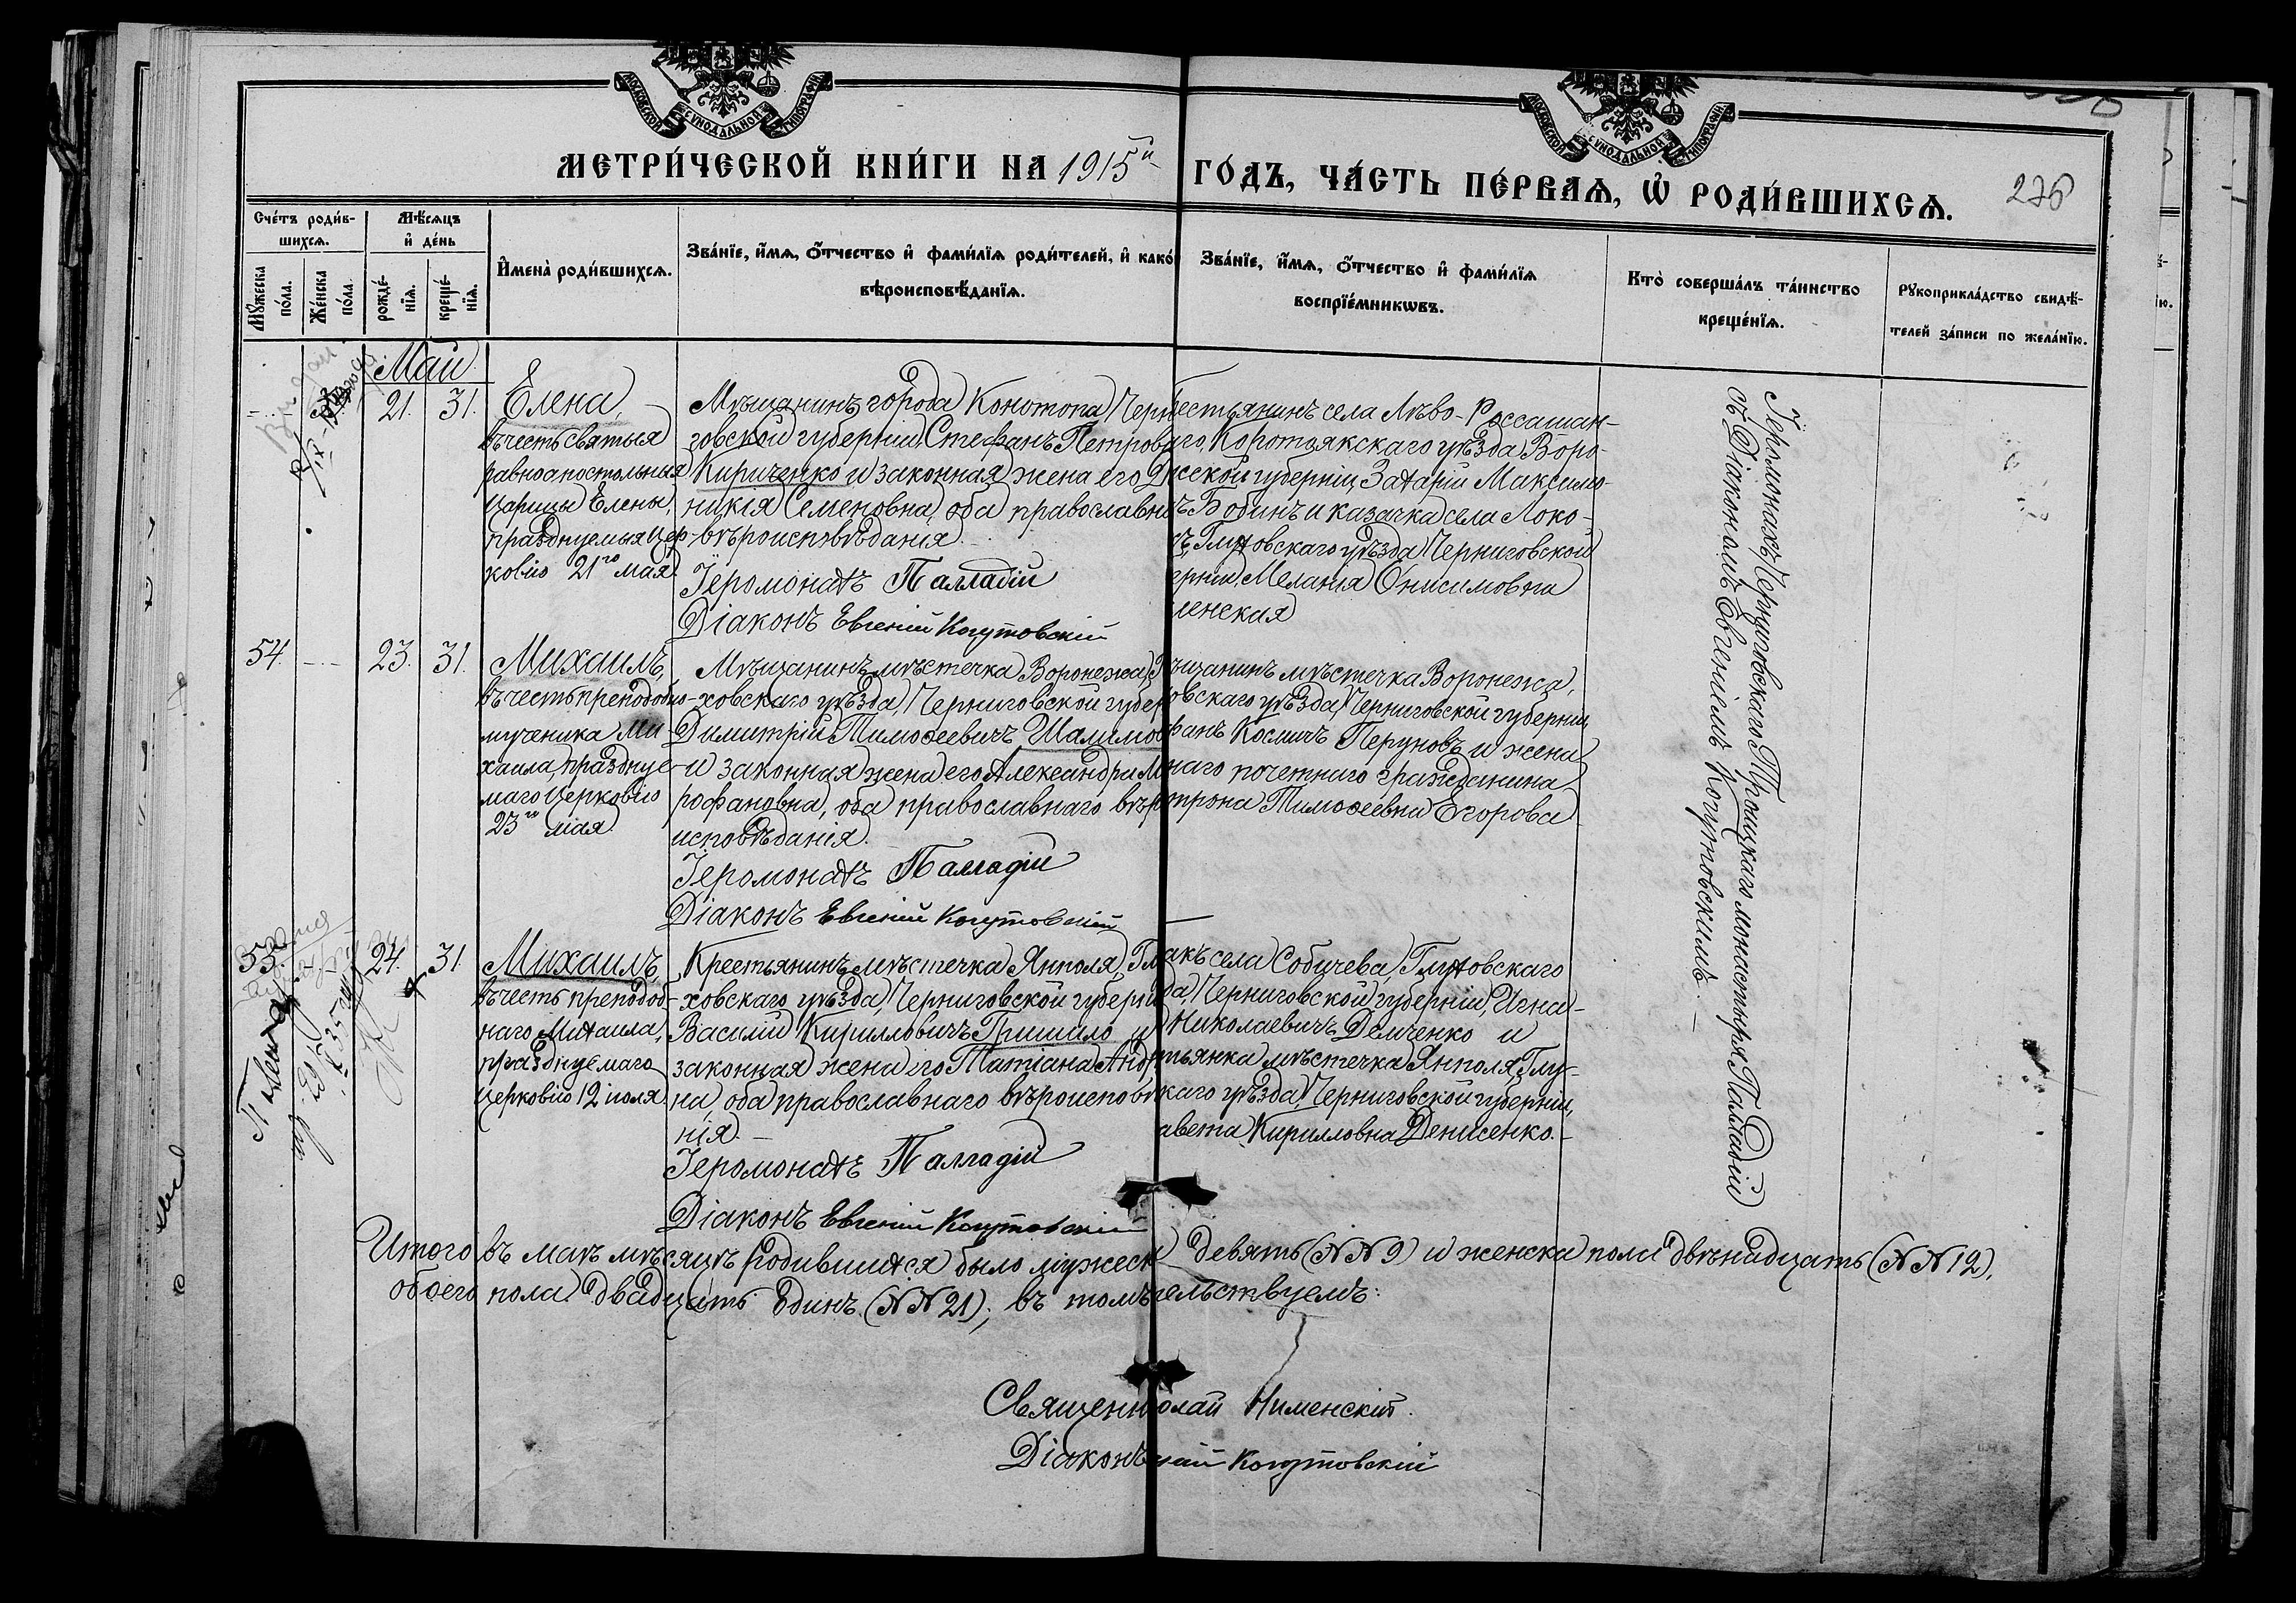 МОСКОВСКОЙ СѴНОДАЛЬНОЙ ТИПОГРАФІИ
МОСКОВСКОЙ СѴНОДАЛЬНОЙ ТИПОГРАФІИ
МЕТРИ́ЧЕСКОЙ КНИ́ГИ НА 1915й ГО́ДЪ, ЧА́СТЬ ПЕ́РВАѦ, Ѽ РОДИ́ВШИХСѦ.
276
Сче́тъ роди́в-
шихсѧ.
Мꙋ́жеска по́ла.
Же́нска по́ла.
Мѣ́сѧцъ
и҆ де́нь
рожде́-
нїѧ.
креще́-
нїѧ.
И҆мена̀ роди́вшихсѧ.
Зва́нїе, и҆́мѧ, ѻ҆́тчество и҆ фами́лїѧ роди́телей, и҆ како́
вѣроисповѣ́данїѧ.
Зва́нїе, и҆́мѧ, ѻ҆́тчество и҆ фами́лїѧ
воспрїе́мникѡвъ.
Кто̀ соверша́лъ та́инство
креще́нїѧ.
Рꙋкоприкла́дство свидѣ́-
телей за́писи по жела́нїю.
Май
21. 31.
Елена,
въ честь святыя
равноапостольныя
Царицы Елены,
празднуемыя Цер-
ковію 21го мая.
Мѣщанинъ города Конотопа Чер
говской губерніи, Стефанъ Петров
Кириченко и законная жена его
никія Семеновна, оба православн
вѣроисповѣданія.
Іеромонахъ Палладій
Діаконъ Евгеній Когутовскій
естьянинъ села Лѣво-Россашан-
го, Коротоякскаго уѣзда Воро-
жской губерніи, Захарій Максимо-
ъ Бобинъ и казачка села Локо-
ъ, Глуховскаго уѣзда Черниговской
ерніи, Меланія Онисимовна
ленская
Іеромонахъ Черниговскаго Троицкаго монастыря Палладій
съ Діакономъ Евгеніемъ Когутовскимъ.
54. - - - 23. 31.
Михаилъ,
въ честь преподобно-
мученика Ми-
хаила, праздную-
маго Церковію
23го мая.
Мѣщанинъ мѣстечка Воронежа,
ховскаго уѣзда, Черниговской губер
Димитрій Тимоѳеевичъ Шалимо
и законная жена его Александра М
рофановна, оба православнаго вѣр
исповѣданія.
Іеромонахъ Палладій
Діаконъ Евгеній Когутовскій
ѣщанинъ мѣстечка Воронежа,
овскаго уѣзда, Черниговской губерніи,
фанъ Космичъ Перуновъ и жена
наго почетнаго гражданина
трона Тимоѳеевна Егорова
55. 24. 31
Михаилъ,
въ честь преподоб-
наго Михаила,
празднуемаго
Церковію 12 іюля.
Крестьянинъ мѣстечка Янполя, Гл
ховскаго уѣзда, Черниговской губерн
Василій Кирилловичъ Гришило и
законная жена его Татіана Анд
на, оба православнаго вѣроиспов
нія.
Іеромонахъ Палладій
Діаконъ Евгеній Когутовскій
акъ села Собичева, Глуховскаго
да, Черниговской губерніи, Игна-
Николаевичъ Демченко и
тьянка мѣстечка Янполя, Глу-
каго уѣзда, Черниговской губерніи,
авета Кирилловна Денисенко.
Итого въ маѣ мѣсяцѣ родившихся было мужеск девять (№№ 9) и женска пола двѣнадцать (№№ 12),
обоего пола двадцать одинъ (№№ 21); въ томъ ельствуемъ:
Священн олай Нименскій.
Діаконъ ній Когутовскій